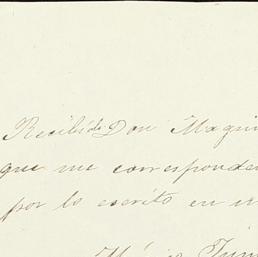 Recibí de Don Maquin
que me corresponden
por lo escrito en
México Jun